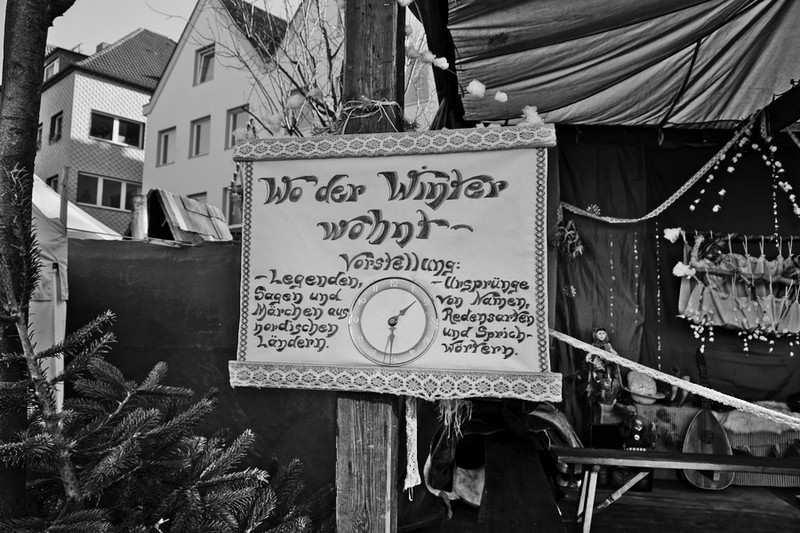 Wo der Winter
wohnt-
Vorstellung:
-Legenden,
Sagen und
Märchen aus
nordischen
Ländern.
-Ursprünge
von Namen,
Redensarten
und Sprich-
wörtern.